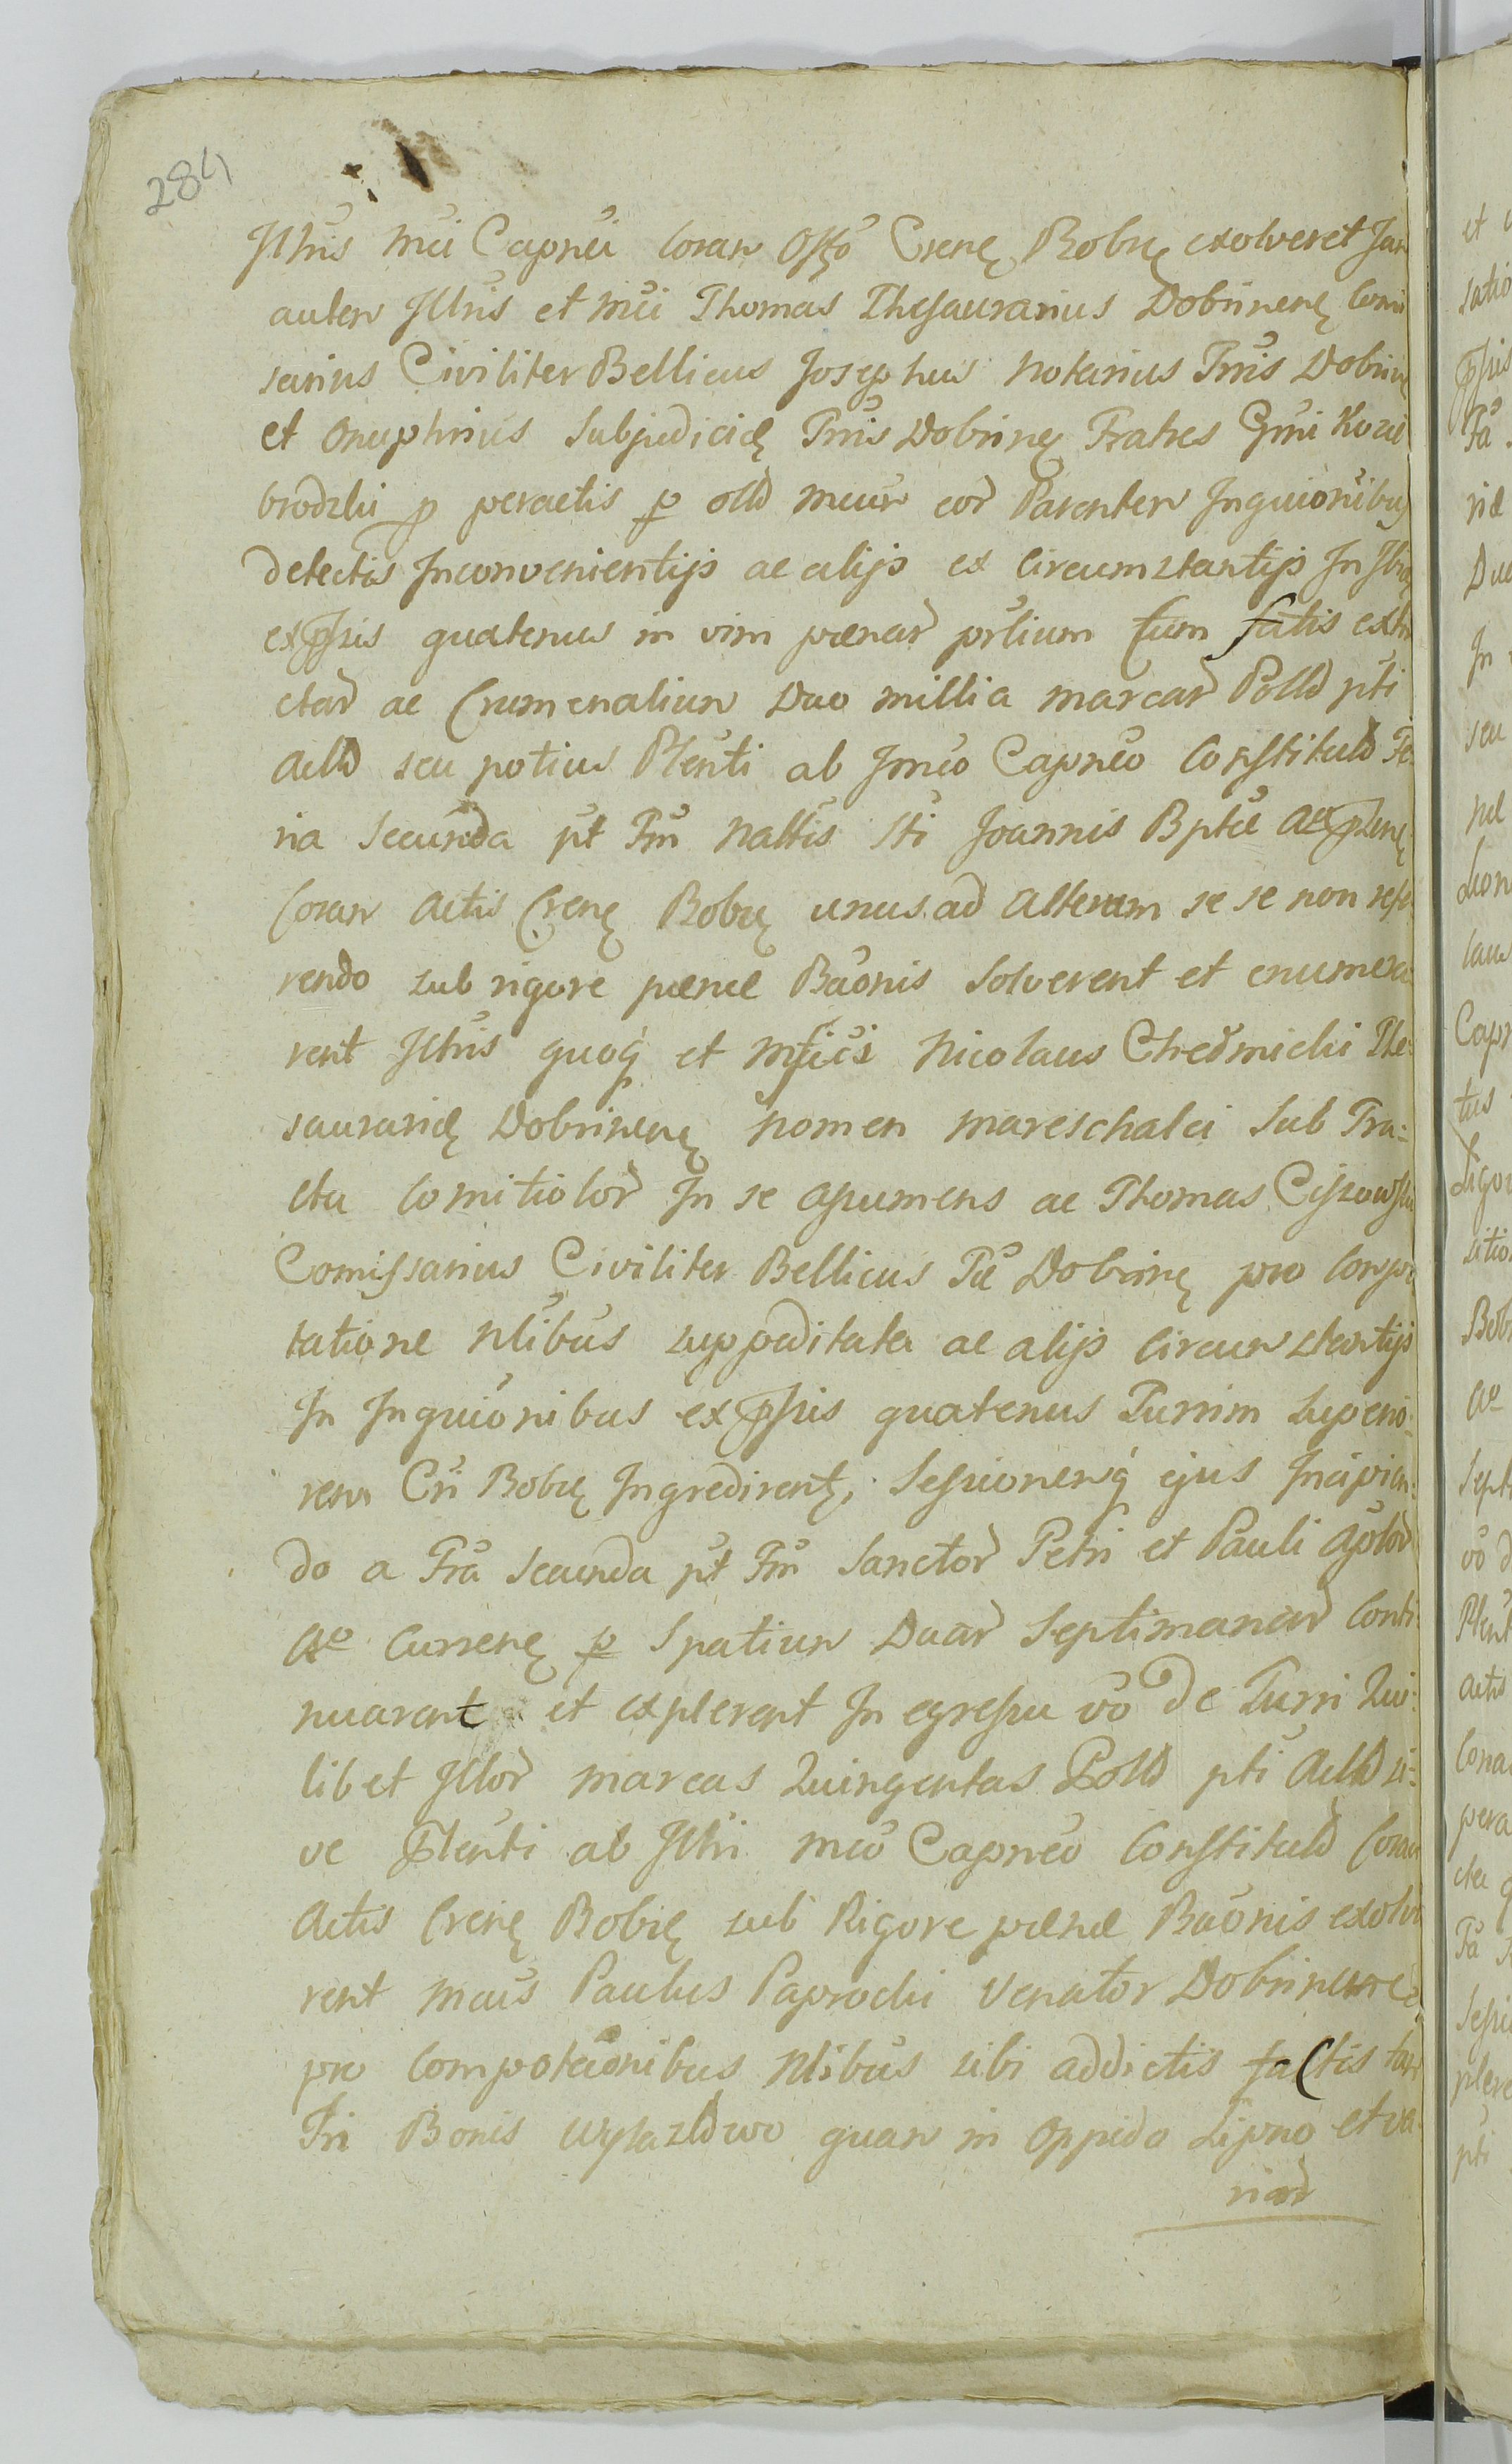 284
Jllris Mci Capnei Coran Offo Crenę Bobrę exolveret Jam
autem Jllris et Mci Thomas Thesaurarius Dobrinenę Comis
sarius Civiliter Bellicus Josephus Notarius Trris Dobrinę
et Onuphrius Subjudicidę Trris Dobrinę Fratres Grni Kozie
brodzki p peractis p olld mcum eor Parentem Inquionibus
detectis Inconvenientijs ac alijs ex Circumstantijs In
expssis quatenus in vim pænar prlium tum satis extra
ctar ac Crumenaliun Duo millia marcar Polld pti
Acllo seu potius Plenti ab Jmco Capneo Constituto Fe
ria Secunda pt Fm Naltis Sti Joannis Bptæ
Coram Actis Crenę Bobrę unus ad alterum se se non refe
rendo sub rigore pænæ Baonis Solverent et enumera
rent Jllris quoq et Mfici Nicolaus Chełmicki The:
sauraridę Dobrinenę nomen Mareschalci Sub Tra:
ctu Comitiolor In se assumens ac Thomas Cissowski
Comissarius Civiliter Bellicus Tæ Dobrinę pro Compo
tatione Nlibus suppeditata ac alijs Circumstantijs
In Inquionibus expssis quatenus Turrim Superio:
rem Cri Bobrę Ingredirentę, Sessionemq ejus Incipien:
do a Fra Secunda pt Fm Sanctor Petri et Pauli Aplor
Ao Currenę p Spatium Duar Septimanar Conti
nuarent et explerent In egressu vo de Turri Qui:
libet Jllor marcas Quingentas Polld pti Acllo si:
ve Plenti ab Jllri Mco Capneo Constituto Coram
Actis Crenę Bobrę sub Rigore pænæ Baonis exolve
rent Mcus Paulus Paprocki Venator Dobrinenę
pro Compotaonibus Nlibus sibi addictis factis tam
In Bonis quam in Oppido Lipno et va
riar